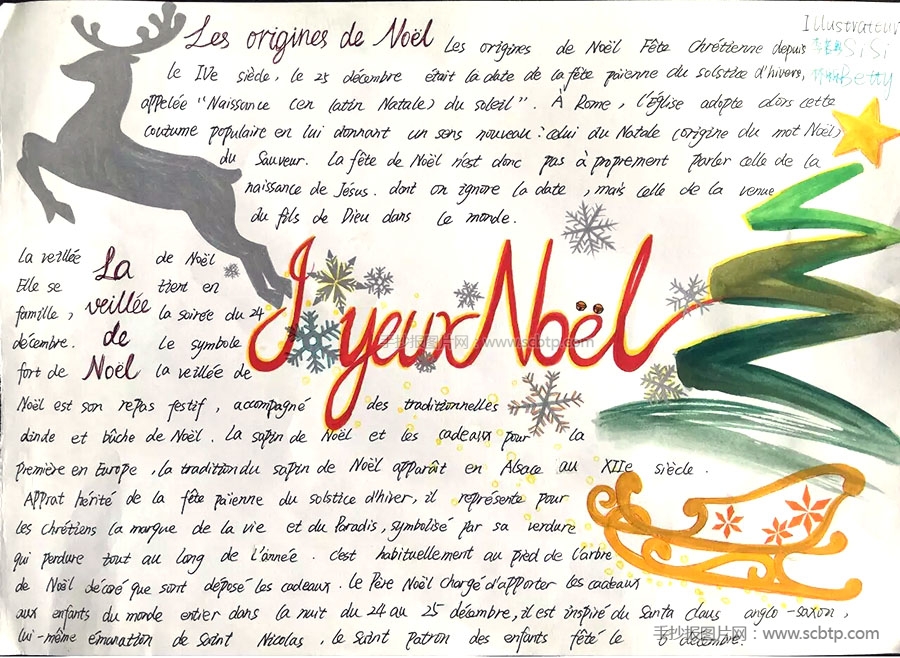 Les origines de Noël
Illustratur
SiSi
Betty
Les origines de Noël Fête Chrétienne depuis
le IVe siède, le 25 décembre était la date de la fête païenne du solstice d'hiver,
appelée "Naissance (en latin Natale) du soleil". À Rome, l'Église adopte alors cette
coutume populaire en lui donnant un sens nouveau: celui du Natale (origine du mot Noël)
du Sauveur. la fête de Noël n'est donc pas à proprement parler celle de la
naissance de Jésus. dont on ignore la date, mais celle de la venue
du fils de Dieu dans le monde.
Joyeux Noël
La veillée de Noël
la veillée de Noël
Elle se tient en
famille, la soirée du 24
décembre. Le symbole
fort de la veillée de
Noël est son repas festif, accompagné des traditionnelles
dinde et bûche de Noël. La sapin de Noël et les cadeaux pour la
première en Europe, la tradition du sapin de Noël apparaît en Alsace au XIIe siècle.
Apprat hérité de la fête païenne du solstice d'hiver, il représente pour
les chrétiens la marque de la vie et du Paradis, symbolisé par sa verdure
qui perdure tout au long de l'année. c'est habituellement au pied de l'arbre
de Noël décoré que sont déposé les cadeaux. le Père Noël chargé d'apporter les cadeaux
aux enfants du monde entier dans la nuit du 24 au 25 décembre, il est inspiré du Santa claus anglo-saxon,
lui-même émanation de Saint Nicolas, le Saint Patron des enfants fêté le 6 décembre.
手抄报图片网:www.scbtp.com
手抄报图片网:www.scbtp.com